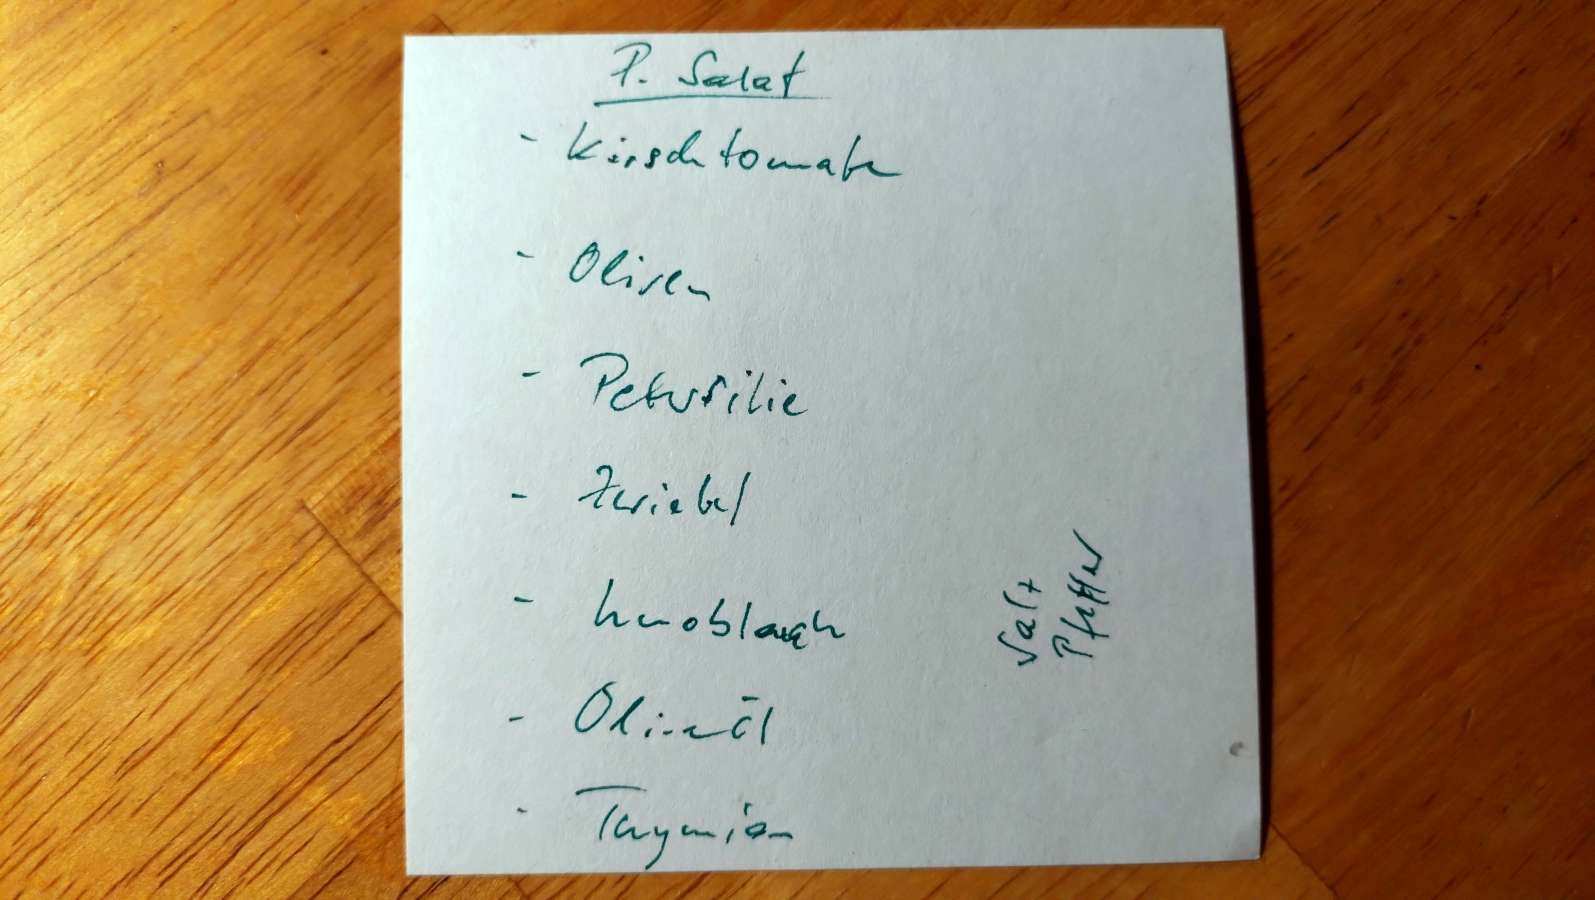 P. Salat
- Kirschtomaten
- Oliven
- Petersilie
- Zwiebel
- Knoblauch
- Olivenöl
- Thymian
Salz
Pfeffer